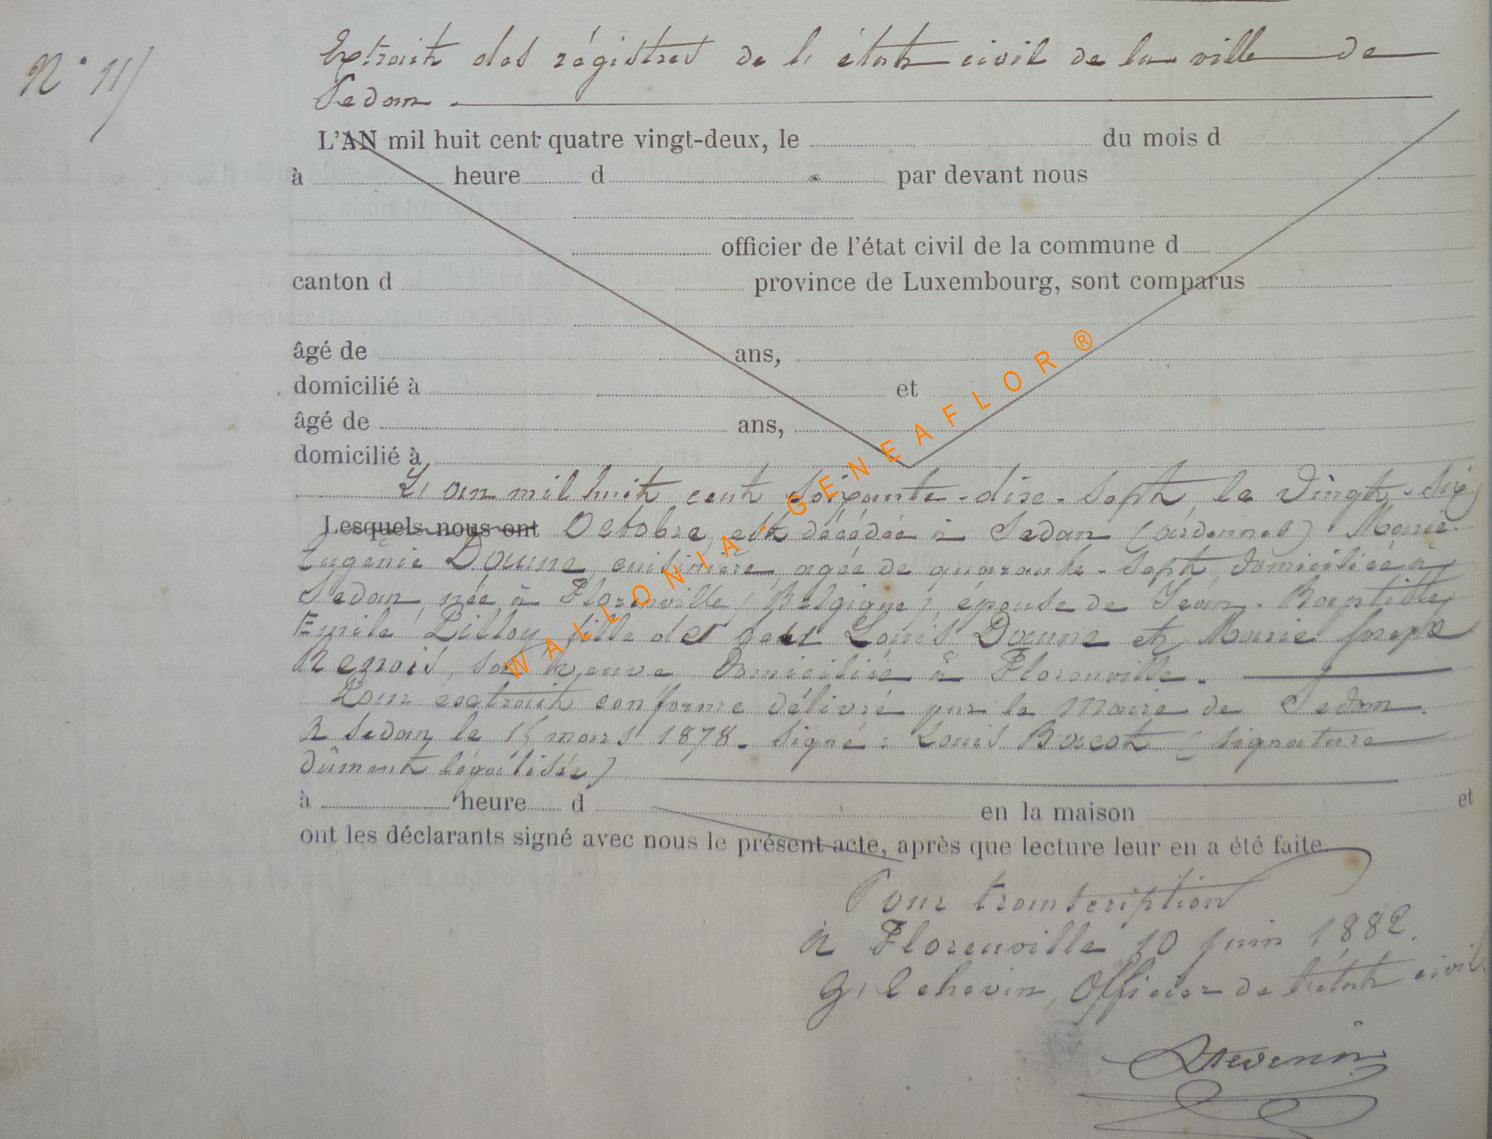 N° 11
Extrait des régistres de l'état civil de la ville de
Sedan.
L'AN mil huit cent quatre vingt-deux, le du mois d
à heure d par devant nous
officier de l'état civil de la commune d
canton d province de Luxembourg, sont comparus
âgé de ans,
domicilié à et
âgé de ans,
domicilié à
L'an mil huit cent soixante-dix-sept, le vingt-six
Lesquels nous ont Octobre, est décédée à Sedan (ardennes) Marie
Eugènie Daune, cuisinière, agée de quarante-sept, domiciliée à
Sedan, née à Florenville (Belgique), épouse de Jean-Baptiste
Emile Lilloy, fille des Louis Daune et Marie Joseph
sa veuve domiciliée à Florenville.
Pour extrait conforme délivré par le Maire de Sedan.
à Sedan le 15 mars 1878. signé: Louis Bacot (signature
dûment légalisée)
à heure d en la maison et
ont les déclarants signé avec nous le présent acte, après que lecture leur en a été faite.
Pour transcription
à Florenville 10 juin 1882.
Officier de l'état civil.
WALLONIA - GENEAFLOR ®